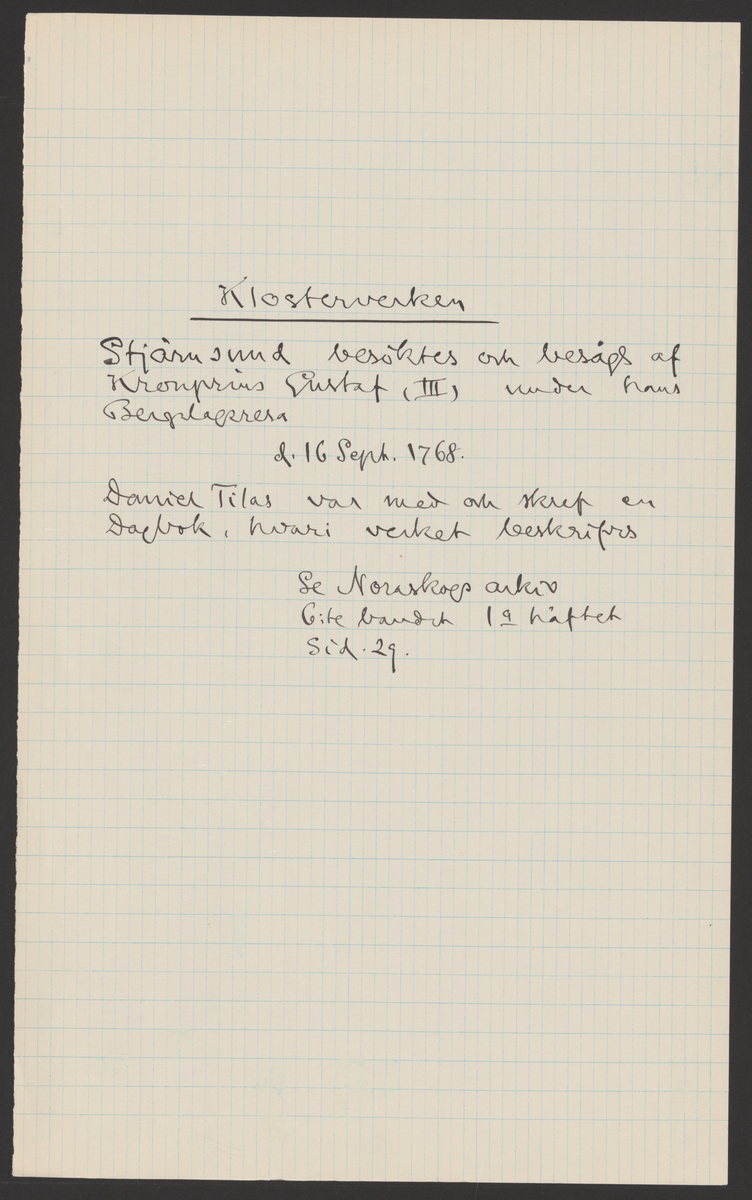 Klosterverken
Stjärnsund besöktes och besågs af
Kronprins Gustaf (III) under hans
Bergslagsresa
d. 16 Sept. 1768.
Daniel Tilas var med och skref en
Dagbok, hvari verket beskrifves
Se Noraskogs arkiv
6:te bandet 1a häftet
Sid. 29.